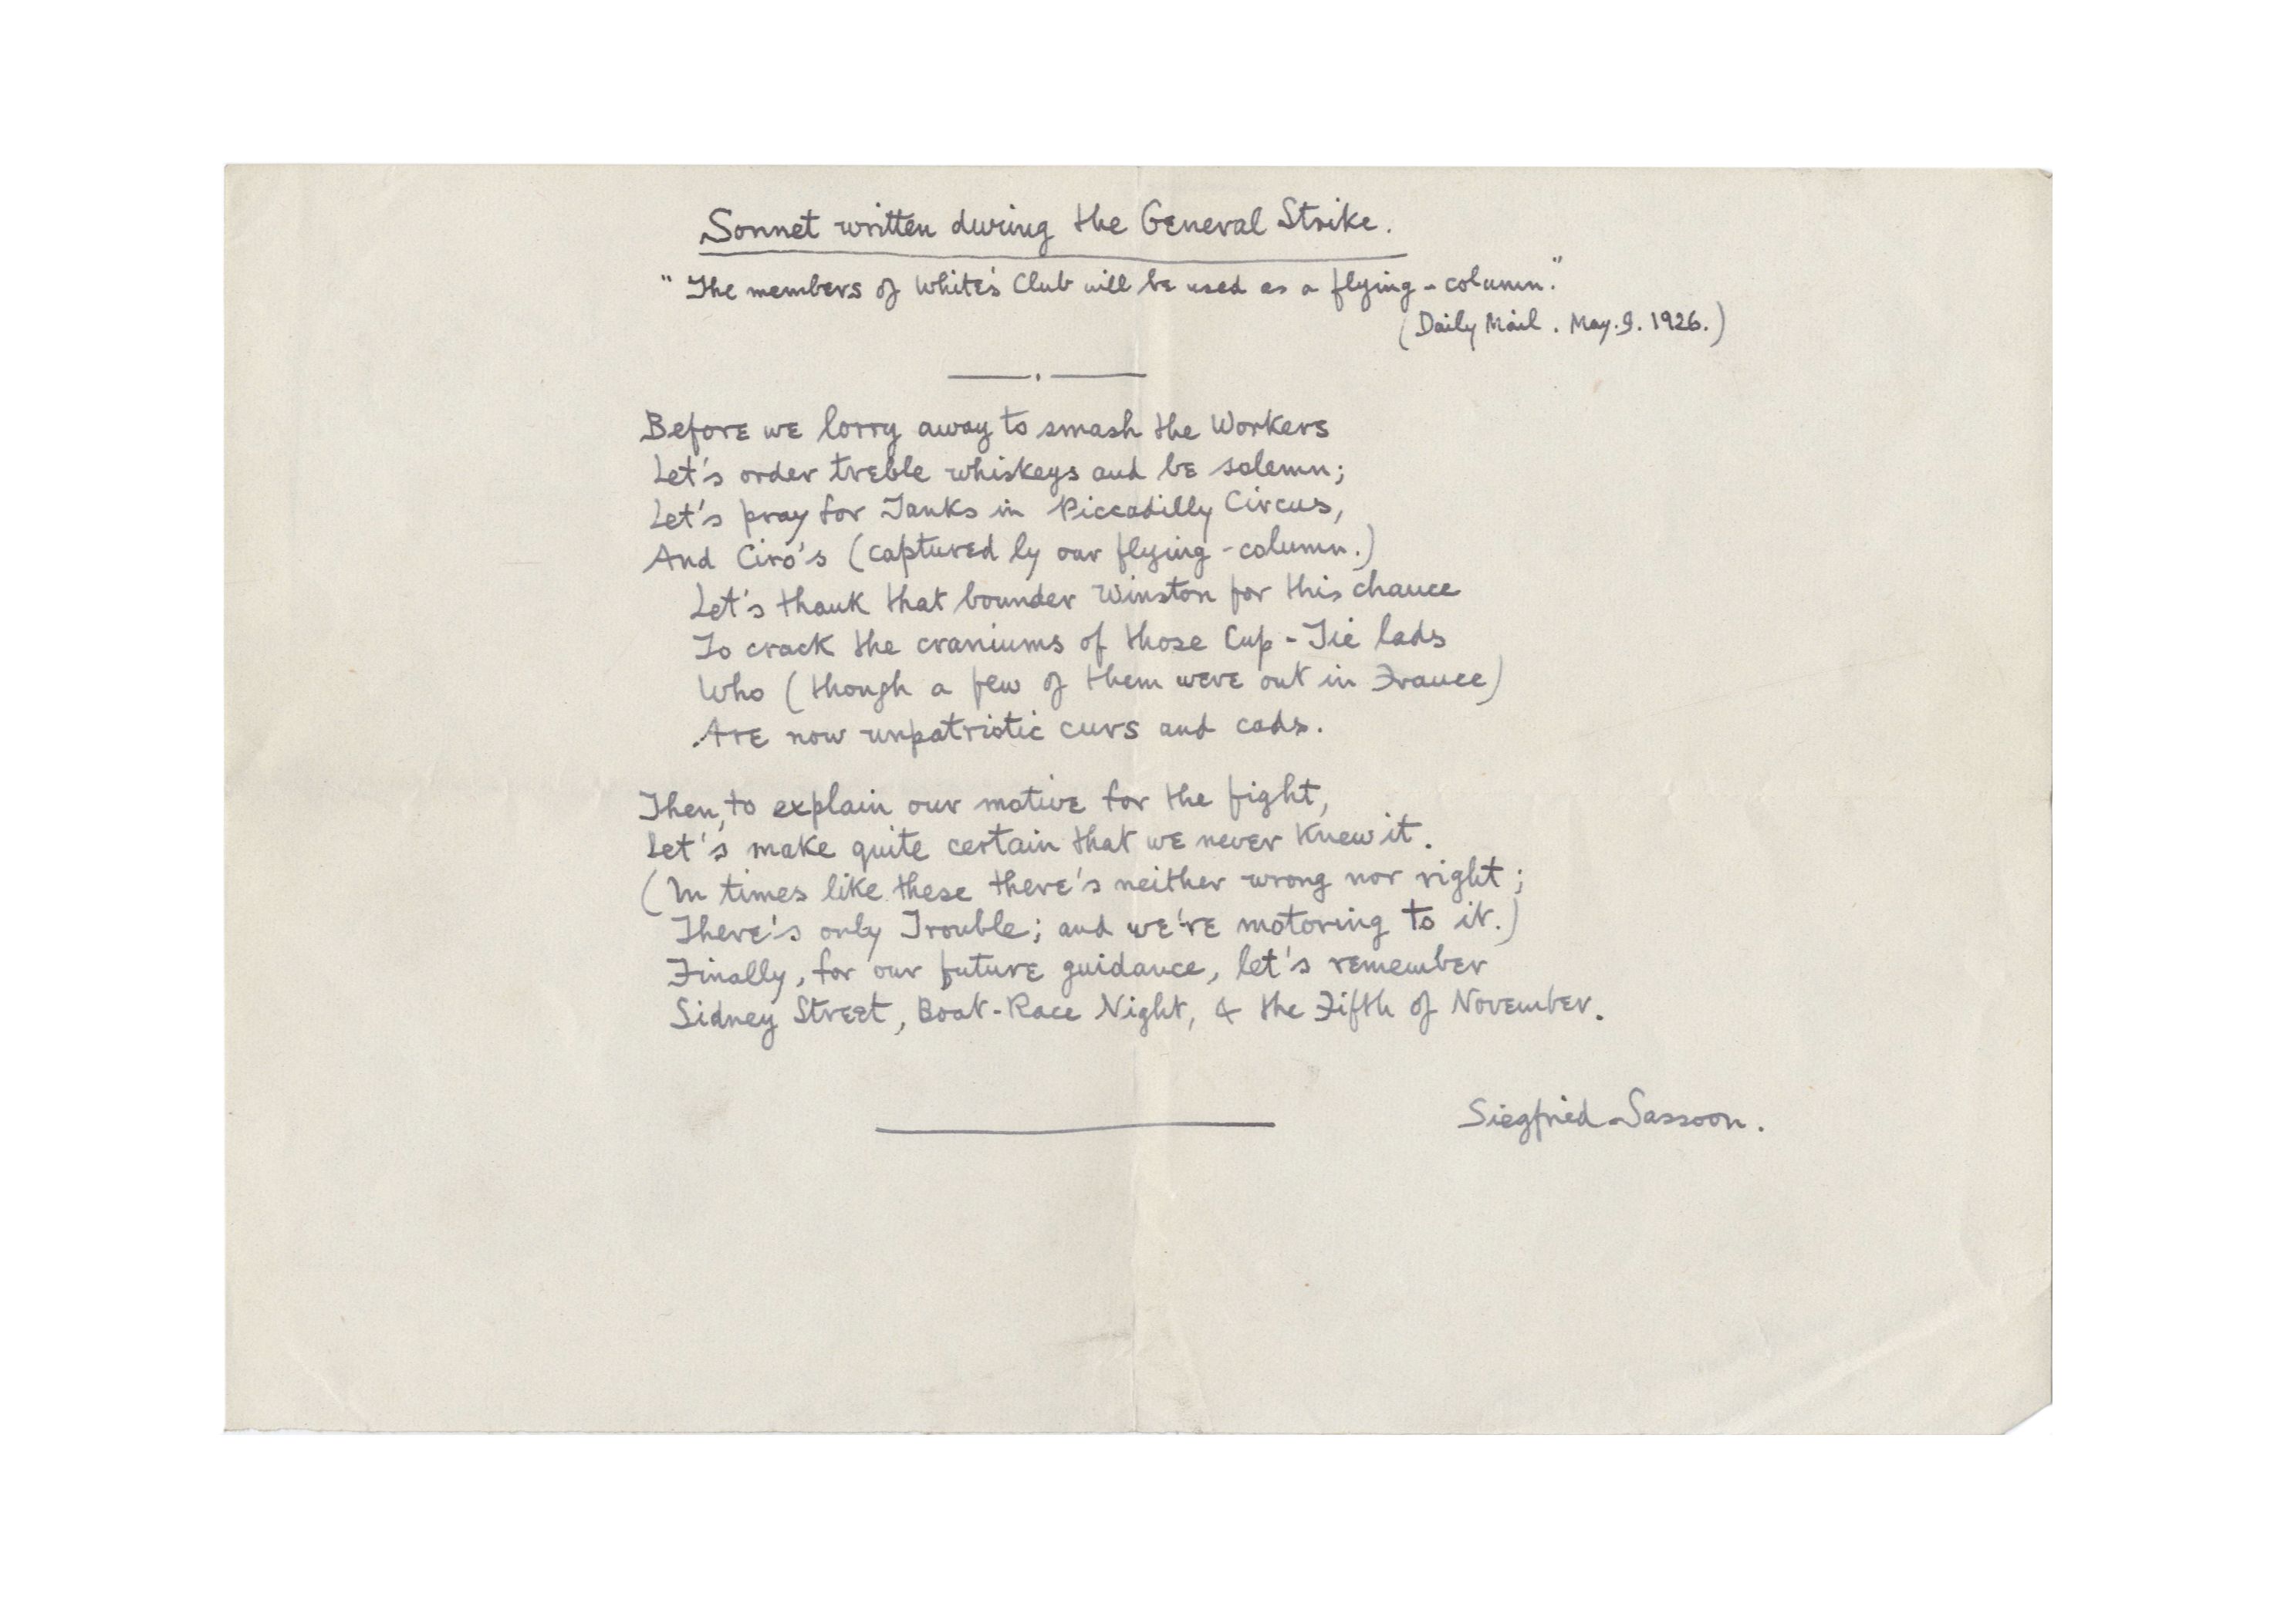 Sonnet written during the General Strike.
"The members of White's Club will be used as a flying-column."
(Daily Mail. May. 9. 1926.)
Before we lorry away to smash the Workers
Let's order treble whiskeys and be solemn;
Let's pray for Tanks in Piccadilly Circus,
And Ciro's (captured by our flying-column.)
Let's thank that bounder Winston for this chance
To crack the craniums of those Cup-Tie lads
Who (though a few of them were out in France)
Are now unpatriotic curs and cads.
Then, to explain our motive for the fight,
Let's make quite certain that we never knew it.
(In times like these there's neither wrong nor right;
There's only Trouble; and we're motoring to it.)
Finally, for our future guidance, let's remember
Sidney Street, Boat-Race Night, & the Fifth of November.
Siegfried Sassoon.